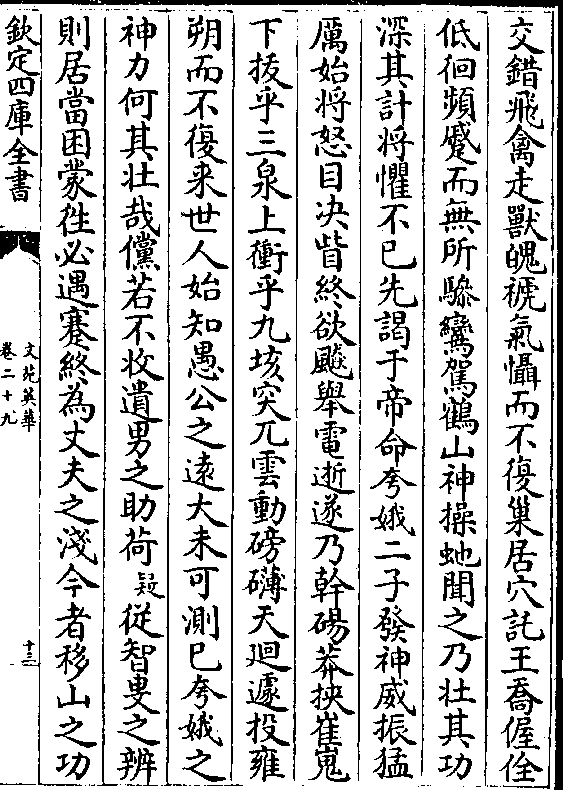 交錯飛禽走獸魄褫氣懾而不復巢居穴託王喬偓佺
低徊頻蹙而無所驂鸞駕鶴山神操虵聞之乃壯其功
深其計將懼不已先謁于帝命夸娥二子發神威振猛
厲始將怒目决眥終欲飈舉電逝遂乃幹碭莽挾崔嵬
下拔乎三泉上衝乎九垓突兀雲動磅礴天迴遽投雍
朔而不復来世人始知愚公之遠大未可測已夸娥之
神力何其壯哉儻若不收遺男之助荷疑從智叟之辨
則居當困蒙徃必遇蹇終為丈夫之淺今者移山之功
欽定四庫全書
文苑英華
卷二十九
十三